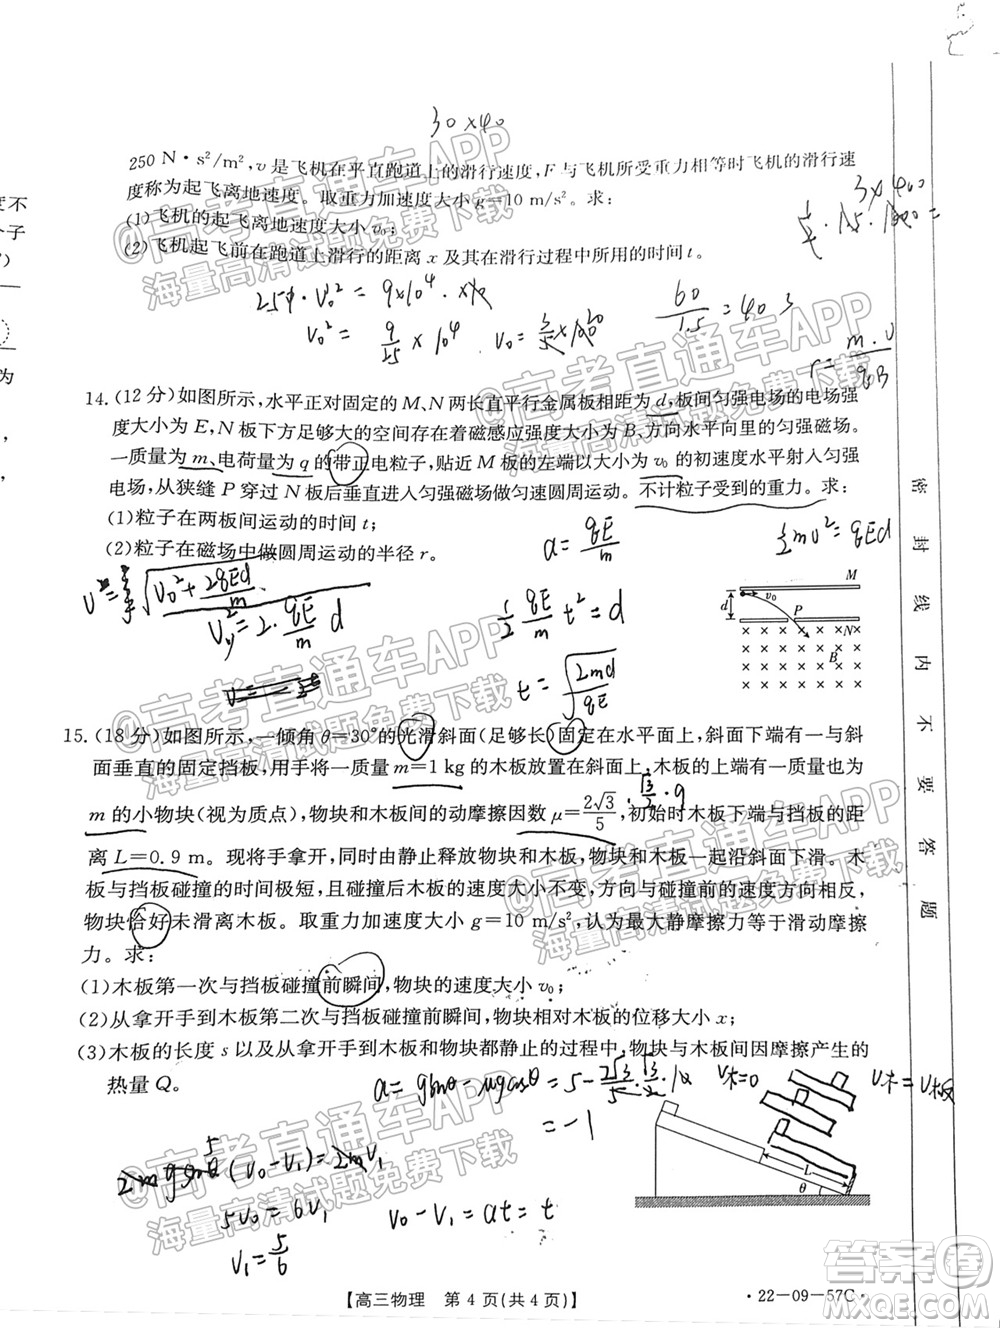 30×40
250 N·s²/m²,v是飞机在平直跑道上的滑行速度,F与飞机所受重力相等时飞机的滑行速
度称为起飞离地速度。取重力加速度大小g=10 m/s²。求:
(1)飞机的起飞离地速度大小v₀;
(2)飞机起飞前在跑道上滑行的距离x及其在滑行过程中所用的时间t。
v₀² = 9/25 × 10⁴
60/1.5 = 40
r = m·v/qB
14.(12分)如图所示,水平正对固定的M、N两长直平行金属板,板间距为d,板间匀强电场的电场强
度大小为E,N板下方足够大的空间存在着磁感应强度大小为B、方向水平向里的匀强磁场。
一质量为m、电荷量为q的带正电粒子,贴近M板的左端以大小为v₀的初速度水平射入匀强
电场,从狭缝P穿过N板后垂直进入匀强磁场做匀速圆周运动。不计粒子受到的重力。求:
(1)粒子在两板间运动的时间t;
(2)粒子在磁场中做圆周运动的半径r。
a = qE/m
½mv² = qEd
v = √(v₀² + 2qEd/m)
v_y² = 2·qE/m d
½ qE/m t² = d
t = √(2md/qE)
M
v₀
d
P
N
B
15.(18分)如图所示,一倾角θ=30°的光滑斜面(足够长)固定在水平面上,斜面下端有一与斜
面垂直的固定挡板,用手将一质量m=1 kg的木板放置在斜面上,木板的上端有一质量也为
m的小物块(视为质点),物块和木板间的动摩擦因数μ=2√3/5,初始时木板下端与挡板的距
离L=0.9 m。现将手拿开,同时由静止释放物块和木板,物块和木板一起沿斜面下滑。木
板与挡板碰撞的时间极短,且碰撞后木板的速度大小不变,方向与碰撞前的速度方向相反,
物块恰好未滑离木板。取重力加速度大小g=10 m/s²,认为最大静摩擦力等于滑动摩擦
力。求:
(1)木板第一次与挡板碰撞前瞬间,物块的速度大小v₀;
(2)从拿开手到木板第二次与挡板碰撞前瞬间,物块相对木板的位移大小x;
(3)木板的长度s以及从拿开手到木板和物块都静止的过程中,物块与木板间因摩擦产生的
热量Q。
a = gsinθ − μgcosθ = 5 −
= −1
v木=0
v木 = v板
(v₀−v₁) = 2mv₁
5v₀ = 6v₁
v₀ − v₁ = at = t
v₁ = 5/6
L
θ
密封线内不要答题
【高三物理 第4页(共4页)】
·22-09-57C·
@高考直通车APP
海量高清试题免费下载
答案圈
MXQE.COM